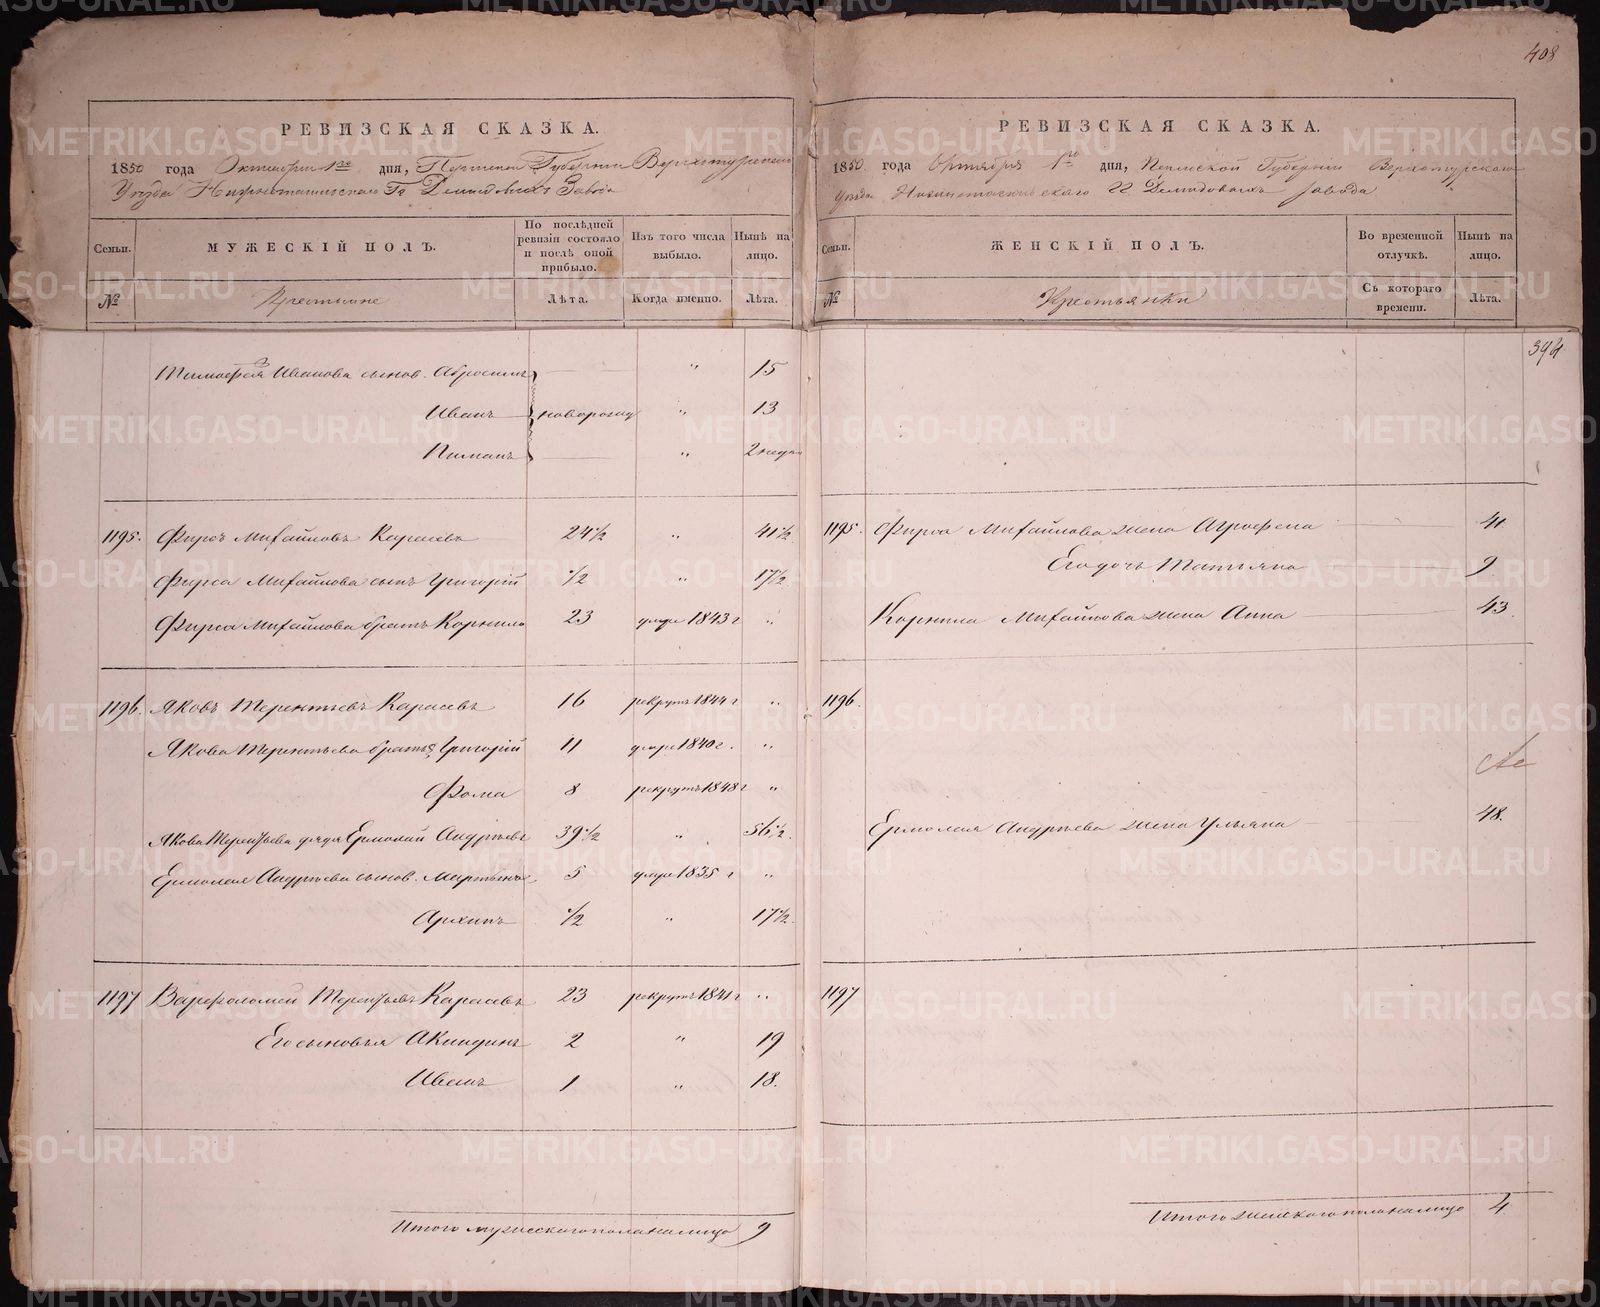 408
РЕВИЗСКАЯ СКАЗКА.
1850 года Октября 1го дня, Пермской Губернии Верхотурскаго
Уезда Нижнетагильскаго Гг Демидовыхъ Завода
Семьи.
МУЖЕСКІЙ ПОЛЪ.
По последней ревизіи состояло и после оной прибыло.
Изъ того числа выбыло.
Ныне на лицо.
№
Крестьяне
Лѣта.
Когда именно.
Лѣта.
Тимофея Иванова сынов. Абросимъ " 15
Иванъ новорожд " 13
Пиманъ " 2 недел
1195. Фирсъ Михайловъ Карасевъ 24 1/2 " 41 1/2
Фирса Михайлова сынъ Григорій 1/2 " 17 1/2
Фирса Михайлова братъ Корнило 23 умре 1843 г "
1196. Яковъ Терентьевъ Карасевъ 16 рекрутъ 1844 г "
Якова Терентьева братья Григорій 11 умре 1840 г. "
Фома 8 рекрутъ 1848 г "
Якова Терентьева дядя Ермолай Андреевъ 39 1/2 " 56 1/2.
Ермолая Андреева сынов. Мартынъ 5 умре 1835 г "
Архипъ 1/2 " 17 1/2.
1197 Варфоломей Терентьевъ Карасевъ 23 рекрутъ 1841 г "
Его сыновья Акиндинъ 2 " 19
Иванъ 1 " 18.
Итого мужескаго пола на лицо 9
РЕВИЗСКАЯ СКАЗКА.
1850 года Октября 1го дня, Пермской Губерніи Верхотурскаго
Уезда Нижнетагильскаго гг Демидовыхъ завода
Семьи.
ЖЕНСКІЙ ПОЛЪ.
Во временной отлучкѣ.
Нынѣ на лицо.
№
Крестьянки
Съ котораго времени.
Лѣта.
394
1195. Фирса Михайлова жена Агрофена 41
Его дочь Татьяна 9
Корнила Михайлова жена Анна 43.
1196.
Ермолая Андреева жена Ульяна 48.
1197
Итого женскаго пола на лицо 4